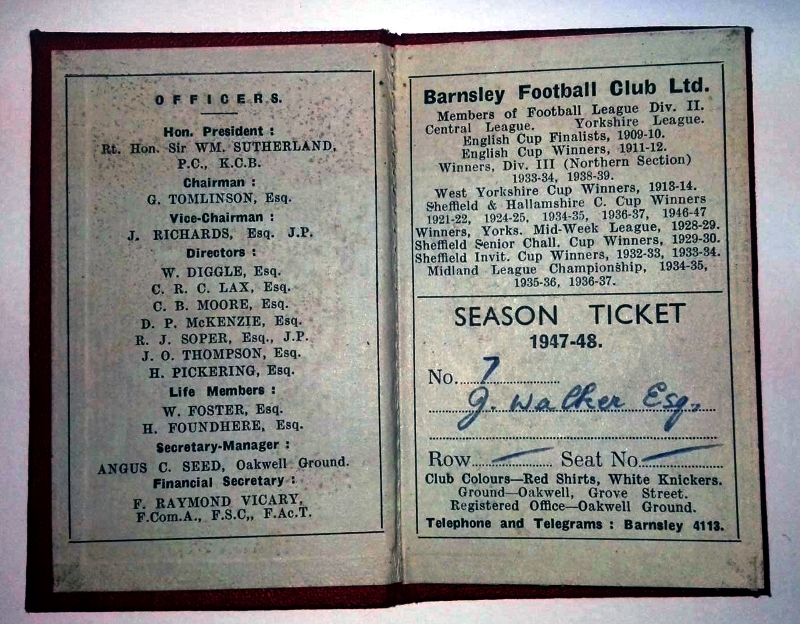 OFFICERS.
Hon. President :
Rt. Hon. Sir WM. SUTHERLAND,
P.C., K.C.B.
Chairman :
G. TOMLINSON, Esq.
Vice-Chairman :
J. RICHARDS, Esq. J.P.
Directors :
W. DIGGLE, Esq.
C. R. C. LAX, Esq.
C. B. MOORE, Esq.
D. P. McKENZIE, Esq.
R. J. SOPER, Esq., J.P.
J. O. THOMPSON, Esq.
H. PICKERING, Esq.
Life Members :
W. FOSTER, Esq.
H. FOUNDHERE, Esq.
Secretary-Manager :
ANGUS C. SEED, Oakwell Ground.
Financial Secretary :
F. RAYMOND VICARY,
F.Com.A., F.S.C,, F.Ac.T.
Barnsley Football Club Ltd.
Members of Football League Div. II.
Central League. Yorkshire League.
English Cup Finalists, 1909-10.
English Cup Winners, 1911-12.
Winners, Div. III (Northern Section)
1933-34, 1938-39.
West Yorkshire Cup Winners, 1913-14.
Sheffield & Hallamshire C. Cup Winners
1921-22, 1924-25, 1934-35, 1936-37, 1946-47
Winners, Yorks. Mid-Week League, 1928-29.
Sheffield Senior Chall. Cup Winners, 1929-30.
Sheffield Invit. Cup Winners, 1932-33, 1933-34.
Midland League Championship, 1934-35,
1935-36, 1936-37.
SEASON TICKET
1947-48.
No. 7
J. Walker Esq.
Row — Seat No —
Club Colours—Red Shirts, White Knickers.
Ground—Oakwell, Grove Street.
Registered Office—Oakwell Ground.
Telephone and Telegrams : Barnsley 4113.